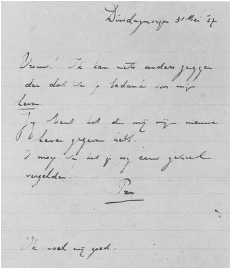 Dinsdagmorgen 31 Mei '27
Vrouw! Ik kan niets anders zeggen
dan dat ik je bedank voor mijn
leven.
Jij bent het die mij mijn nieuwe
leven gegeven hebt.
Ik mag je het jij nog eens geheel
vergelden.
Ik voel mij goed.